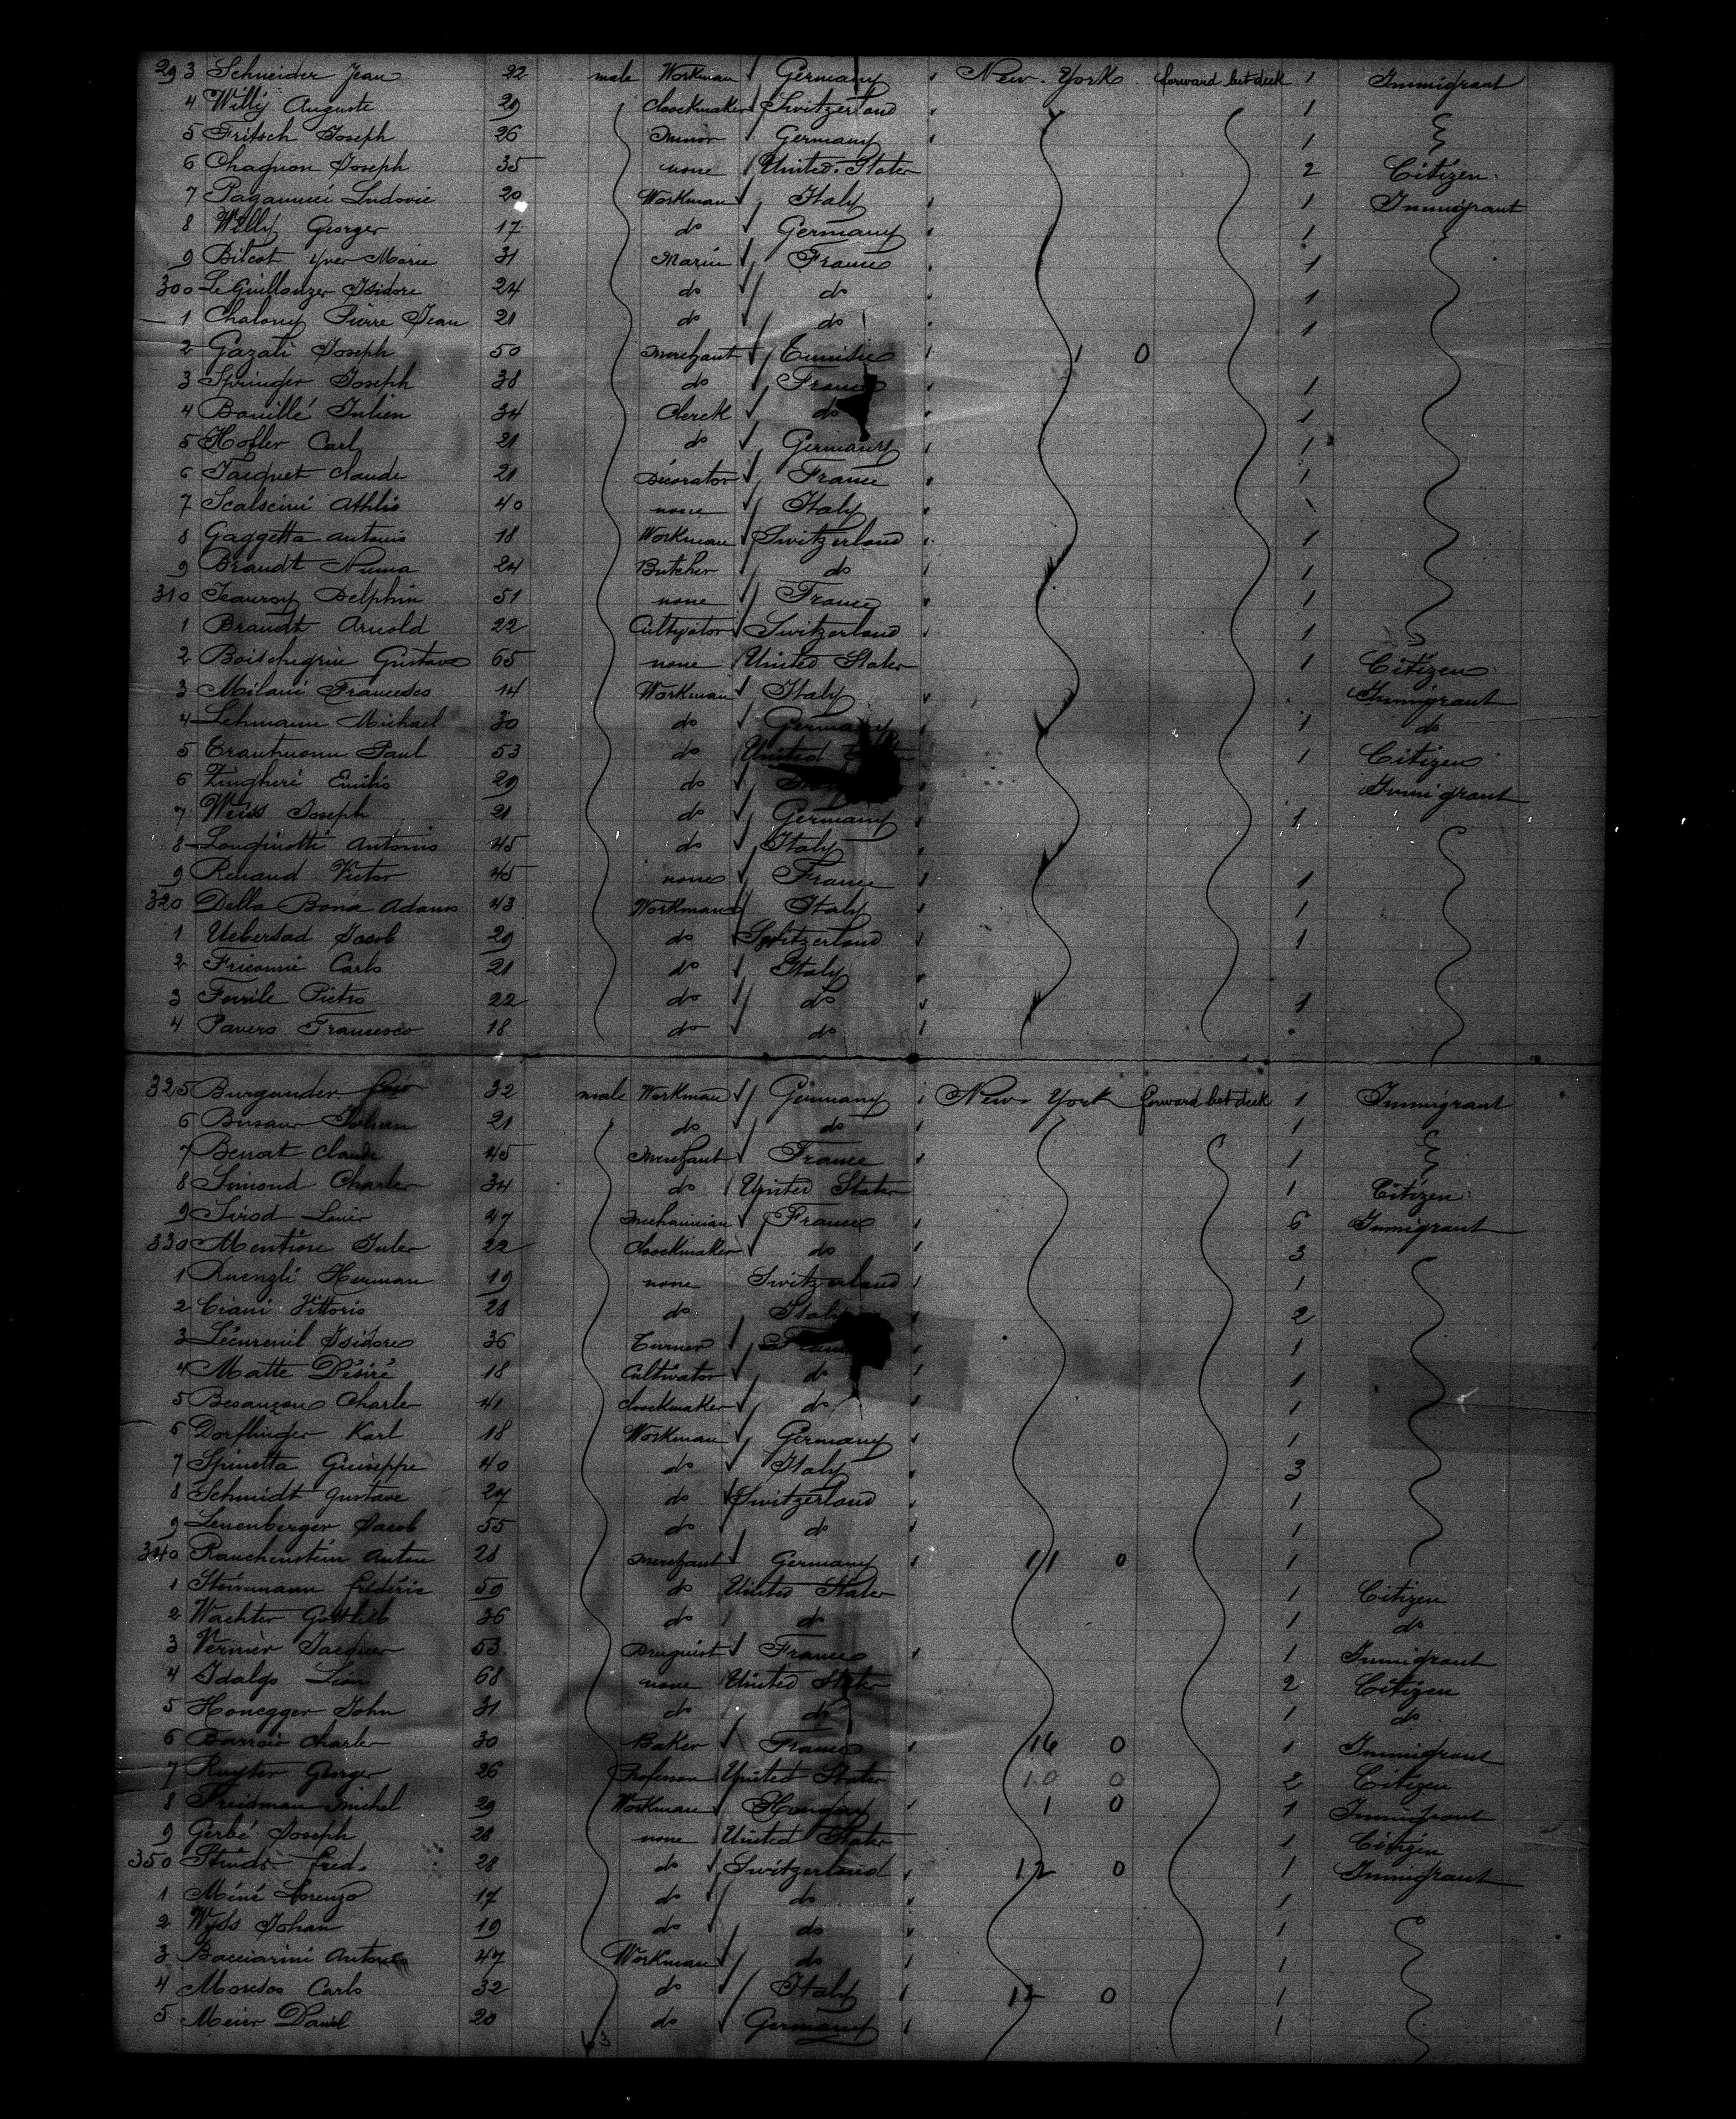 293 Schneider Jean 22 male Workman Germany New-York forward bet deck 1 Immigrant
4 Willy Auguste 29 Cloockmaker Switzerland 1
5 Fritsch Joseph 26 Minor Germany 1
6 Chagnon Joseph 35 none United States 2 Citizen
7 Paganucci Ludovic 20 Workman Italy 1 Immigrant
8 Willy Georges 17 do Germany 1
9 Bilcot Yves Marie 31 Marin France 1
300 Le Guillouzer Isidore 24 do do 1
1 Chalony Pierre Jean 21 do do 1
2 Gazali Joseph 50 Merchant Tunisie 1 0
3 Springer Joseph 38 do France 1
4 Bouillé Julien 34 Clerck do 1
5 Hofler Carl 21 do Germany 1
6 Jacquet Claude 21 Décorator France 1
7 Scalscini Athlio 40 none Italy 1
8 Gaggetta Antonio 18 Workman Switzerland 1
9 Brandt Numa 24 Butcher do 1
310 Jeauroy Delphin 51 none France 1
1 Brandt Arnold 22 Cultivator Switzerland 1
2 Boischegrin Gustave 65 none United States 1 Citizen
3 Milani Francesco 14 Workman Italy Immigrant
4 Lehmann Michael 30 do Germany 1 do
5 Trautmann Paul 53 do United 1 Citizen
6 Zingheri Emilio 29 do Immigrant
7 Weiss Joseph 21 do Germany 1
8 Longinotti Antonio 45 do Italy
9 Renaud Victor 45 none France 1
320 Della Bona Adamo 43 Workman Italy 1
1 Uebersad Jacob 29 do Switzerland 1
2 Carlo 21 do Italy
3 Pietro 22 do do 1
4 Pavero Francesco 18 do do
325 Burgunder 32 male Workman Germany New-York forward bet deck 1 Immigrant
6 Johan 21 do do 1
7 Benoit Claude 45 Merchant France 1
8 Simond Charles 34 do United States 1 Citizen
9 Sirod Louis 47 Mechanician France 6 Immigrant
330 Mentione Jules 22 Cloockmaker do 3
1 Kuenzli Herman 19 none Switzerland 1
2 Ciani Vittorio 28 do Italy 2
3 Lécureuil Isidore 36 Turner 1
4 Matte Désiré 18 Cultivator do 1
5 Besançon Charles 41 Cloockmaker do 1
6 Dorflinger Karl 18 Workman Germany 1
7 Spinetta Guiseppe 40 do Italy 3
8 Schmidt Gustave 27 do Switzerland 1
9 Leuenberger Jacob 55 do do 1
340 Rauchenstein Anton 28 Merchant Germany 11 0 1
1 Steinmann Frédéric 59 do United States 1 Citizen
2 Wachter Gottlieb 36 do do 1 do
3 Vernier Jacques 53 Druguist France 1 Immigrant
4 Idalgo Léon 68 none United States 2 Citizen
5 Honegger John 31 do do 1 do
6 Barrois Charles 30 Baker France 16 0 1 Immigrant
7 Ruyter Georges 26 Professor United States 10 0 2 Citizen
8 Freidman Michel 29 Workman Hongary 1 0 1 Immigrant
9 Gerbé Joseph 28 none United States 1 Citizen
350 Fred. 28 do Switzerland 12 0 1 Immigrant
1 Méné Lorenzo 17 do do 1
2 Wyss Johan 19 do do 1
3 Bacciarini Antonio 47 Workman do 1
4 Moresco Carlo 32 do Italy 12 0 1
5 Meier Daniel 20 do Germany 1